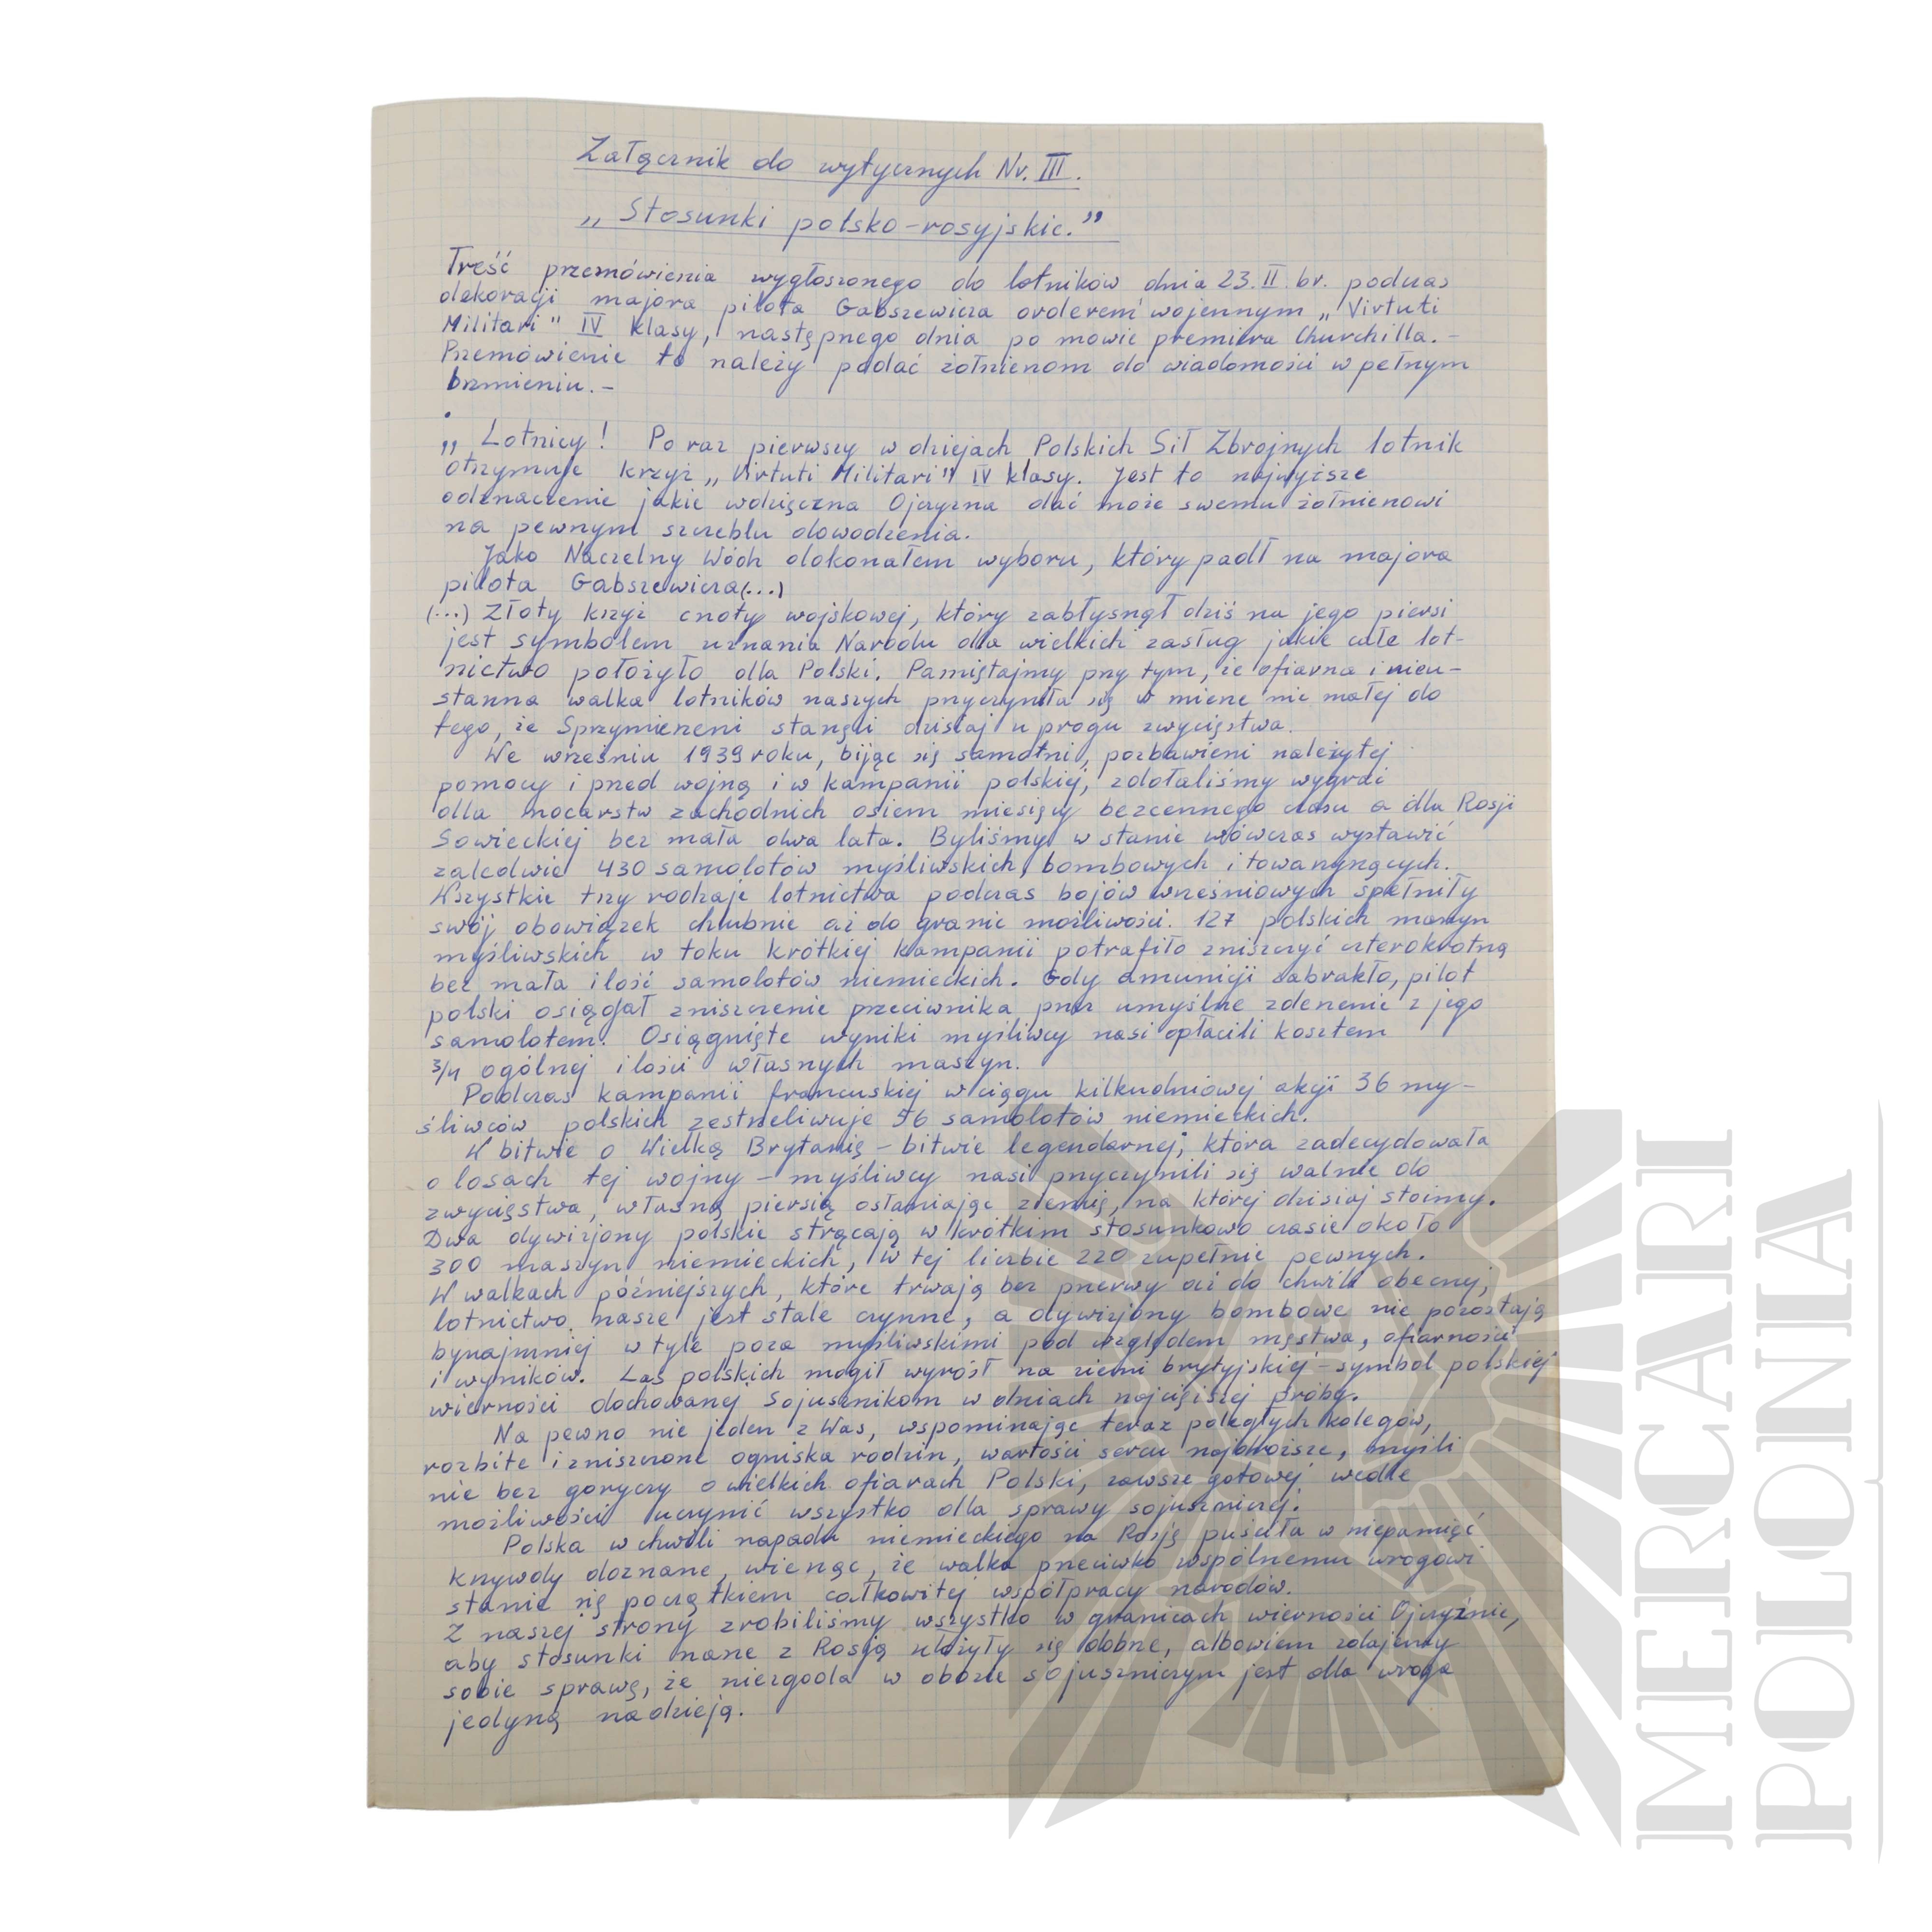 Załącznik do wytycznych Nr. III.
„Stosunki polsko-rosyjskie.”
Treść przemówienia wygłoszonego do lotników dnia 23.II.br. podczas
dekoracji majora pilota Gabszewicza orderem wojennym „Virtuti
Militari" IV klasy, następnego dnia po mowie premiera Churchilla.-
Przemówienie to należy podać żołnierzom do wiadomości w pełnym
brzmieniu.-
„Lotnicy! Po raz pierwszy w dziejach Polskich Sił Zbrojnych lotnik
otrzymuje krzyż „Virtuti Militari" IV klasy. Jest to najwyższe
odznaczenie jakie wdzięczna Ojczyzna dać może swemu żołnierzowi
na pewnym szczeblu dowodzenia.
Jako Naczelny Wódz dokonałem wyboru, który padł na majora
pilota Gabszewicza(...)
(...) Złoty krzyż cnoty wojskowej, który zabłysnął dziś na jego piersi
jest symbolem uznania Narodu dla wielkich zasług jakie całe lot-
nictwo położyło dla Polski. Pamiętajmy przy tym, że ofiarna i nieu-
stanna walka lotników naszych przyczyniła się w mierze nie małej do
tego, że Sprzymierzeni stanęli dzisiaj u progu zwycięstwa.
We wrześniu 1939 roku, bijąc się samotni, pozbawieni należytej
pomocy i przed wojną i w kampanii polskiej, zdołaliśmy wygrać
dla mocarstw zachodnich osiem miesięcy bezcennego czasu a dla Rosji
Sowieckiej bez mała dwa lata. Byliśmy w stanie wówczas wystawić
zaledwie 430 samolotów myśliwskich, bombowych i towarzyszących.
Wszystkie trzy rodzaje lotnictwa podczas bojów wrześniowych spełniły
swój obowiązek chlubnie aż do granic możliwości. 127 polskich maszyn
myśliwskich w toku krótkiej kampanii potrafiło zniszczyć czterokrotną
bez mała ilość samolotów niemieckich. Gdy amunicji zabrakło, pilot
polski osiągał zniszczenie przeciwnika przez umyślne zderzenie z jego
samolotem. Osiągnięte wyniki myśliwcy nasi opłacili kosztem
3/4 ogólnej ilości własnych maszyn.
Podczas kampanii francuskiej w ciągu kilkudniowej akcji 36 my-
śliwców polskich zestrzeliwuje 56 samolotów niemieckich.
W bitwie o Wielką Brytanię - bitwie legendarnej, która zadecydowała
o losach tej wojny - myśliwcy nasi przyczynili się walnie do
zwycięstwa, własną piersią osłaniając ziemię, na której dzisiaj stoimy.
Dwa dywizjony polskie strącają w krótkim stosunkowo czasie około
300 maszyn niemieckich, w tej liczbie 220 zupełnie pewnych.
W walkach późniejszych, które trwają bez przerwy aż do chwili obecnej,
lotnictwo nasze jest stale czynne, a dywizjony bombowe nie pozostają
bynajmniej w tyle poza myśliwskimi pod względem męstwa, ofiarności
i wyników. Las polskich mogił wyrósł na ziemi brytyjskiej - symbol polskiej
wierności dochowanej Sojusznikom w dniach najcięższej próby.
Na pewno nie jeden z Was, wspominając teraz poległych kolegów,
rozbite i zniszczone ogniska rodzin, wartości sercu najdroższe, myśli
nie bez goryczy o wielkich ofiarach Polski, zawsze gotowej wedle
możliwości uczynić wszystko dla sprawy sojuszniczej.
Polska w chwili napadu niemieckiego na Rosję puściła w niepamięć
krzywdy doznane, wierząc, że walka przeciwko wspólnemu wrogowi
stanie się początkiem całkowitej współpracy narodów.
Z naszej strony zrobiliśmy wszystko w granicach wierności Ojczyźnie,
aby stosunki nasze z Rosją ułożyły się dobrze, albowiem zdajemy
sobie sprawę, że niezgoda w obozie sojuszniczym jest dla wroga
jedyną nadzieją.
MERCARI
POLONIA